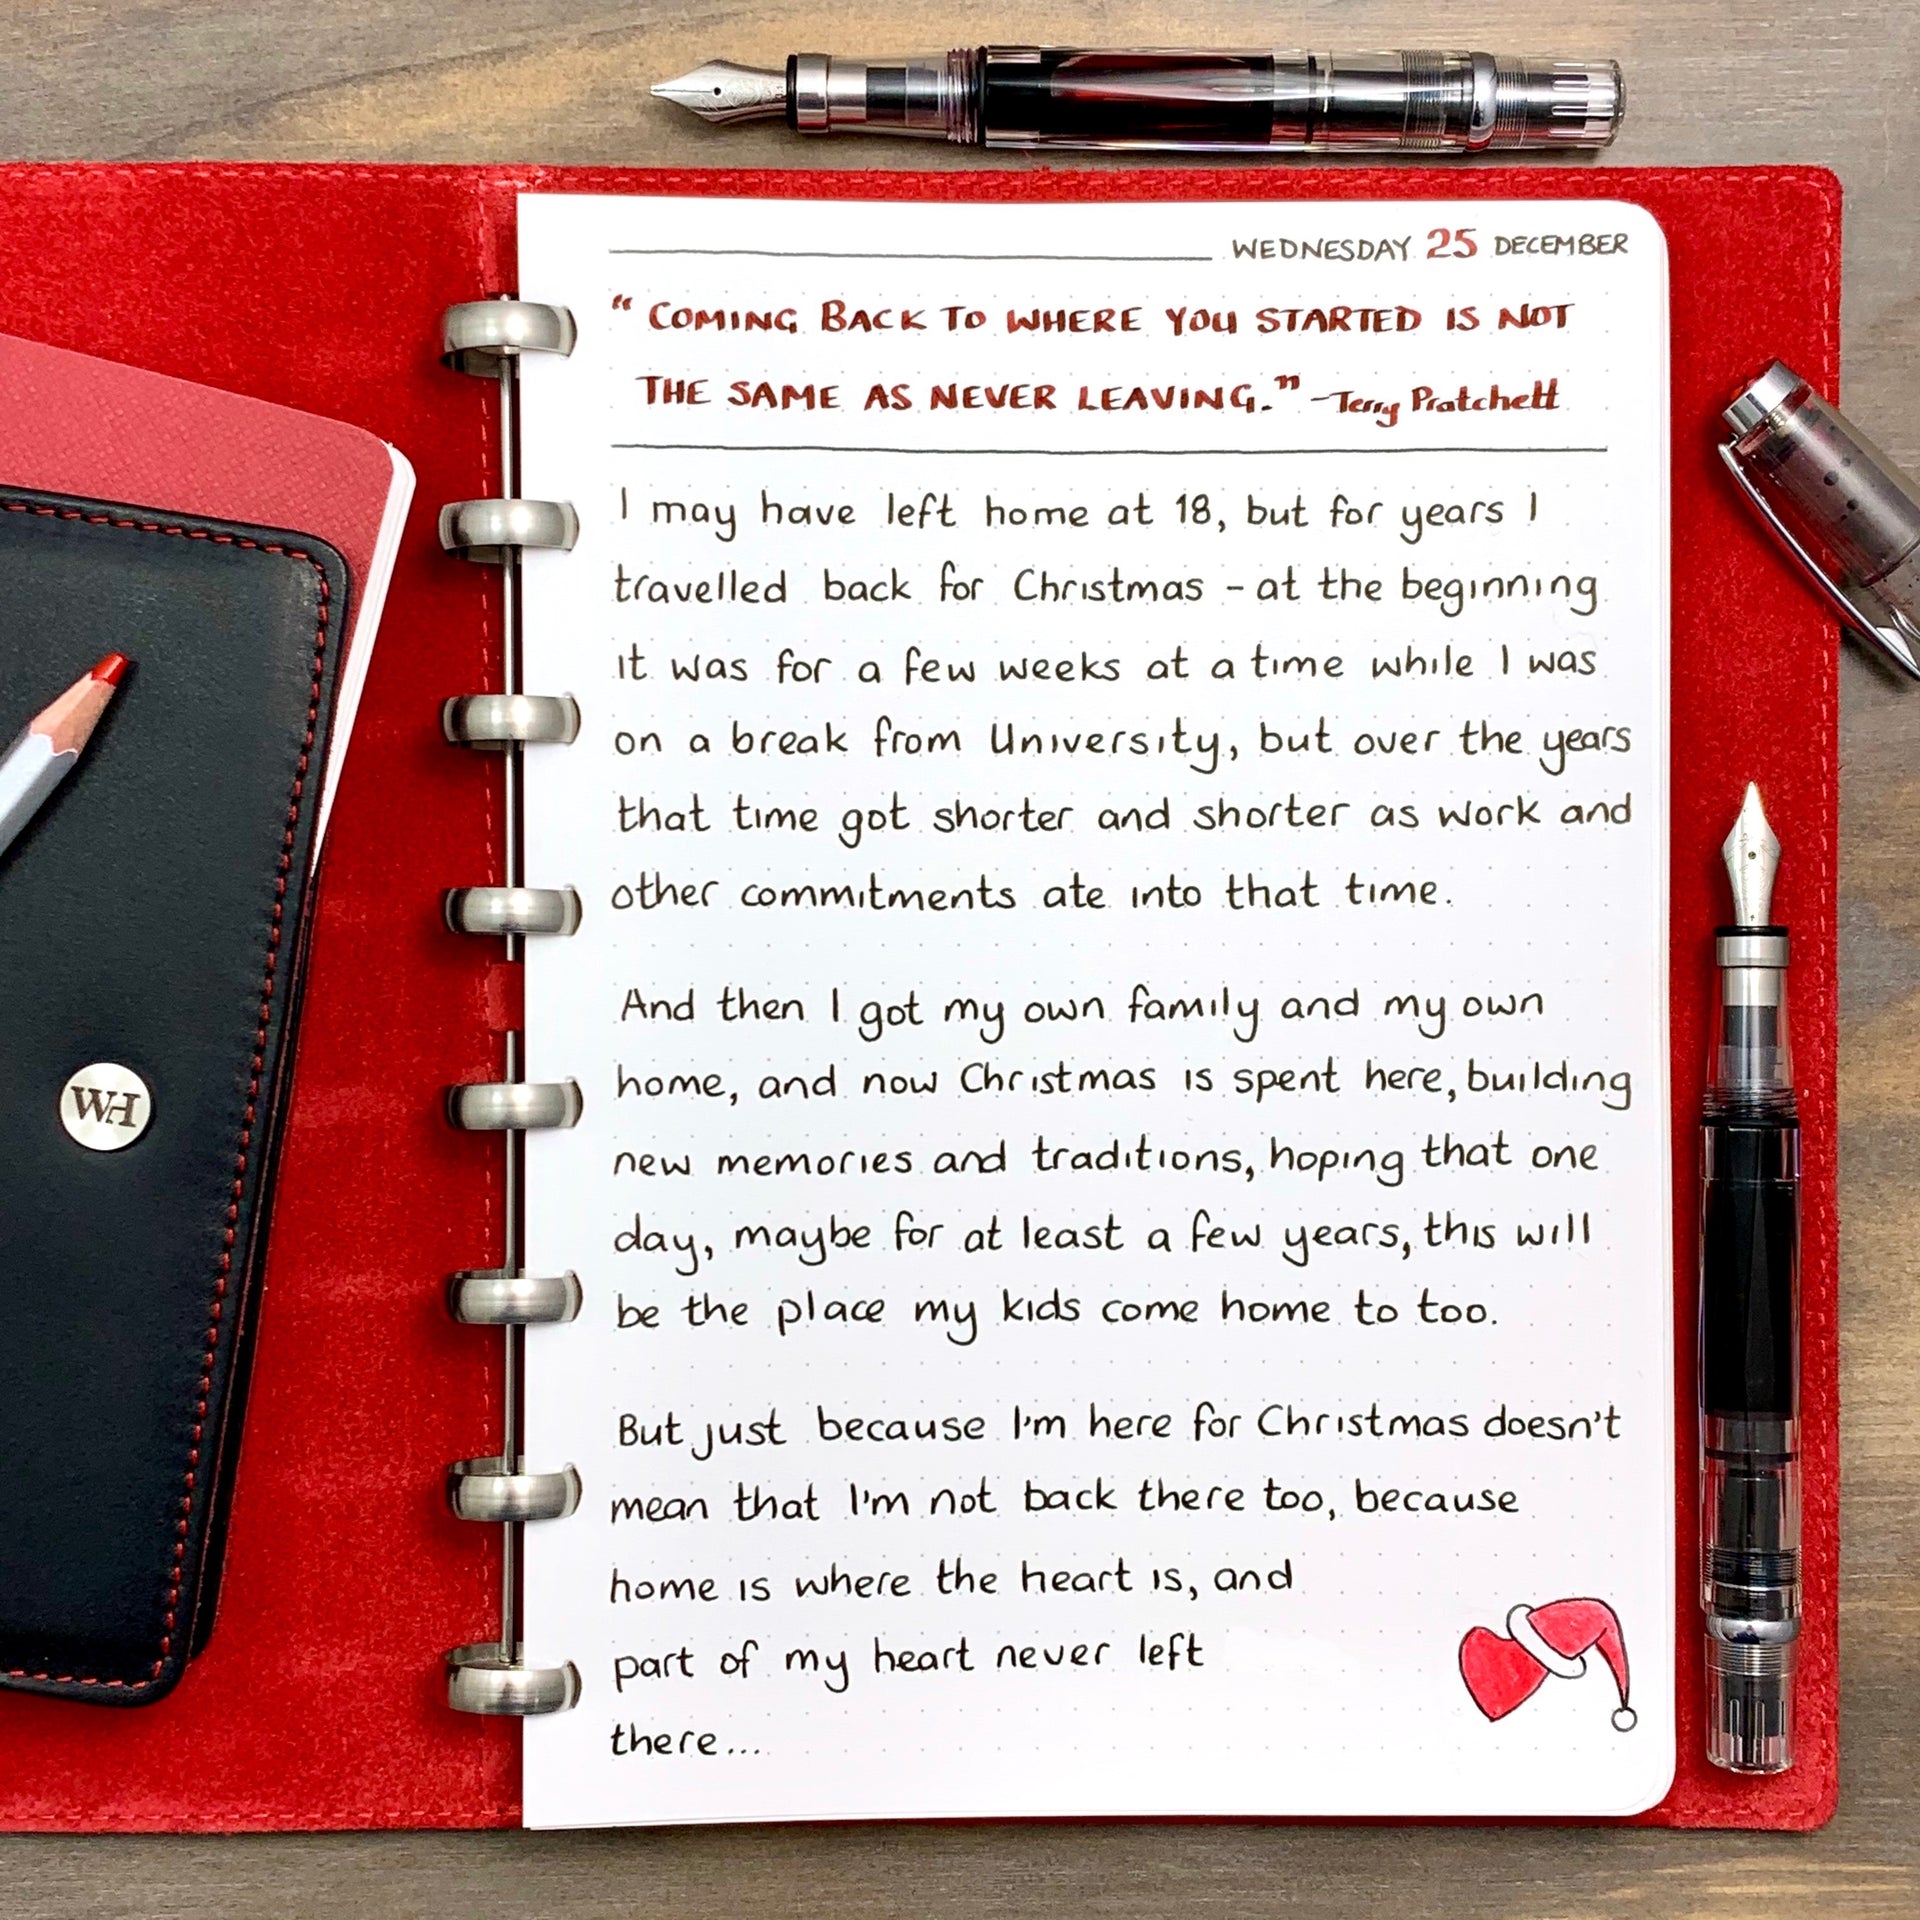 WEDNESDAY 25 DECEMBER
"COMING BACK TO WHERE YOU STARTED IS NOT
THE SAME AS NEVER LEAVING." -Terry Pratchett
I may have left home at 18, but for years I
travelled back for Christmas - at the beginning
it was for a few weeks at a time while I was
on a break from University, but over the years
that time got shorter and shorter as work and
other commitments ate into that time.
And then I got my own family and my own
home, and now Christmas is spent here, building
new memories and traditions, hoping that one
day, maybe for at least a few years, this will
be the place my kids come home to too.
But just because I'm here for Christmas doesn't
mean that I'm not back there too, because
home is where the heart is, and
part of my heart never left
there...
WH